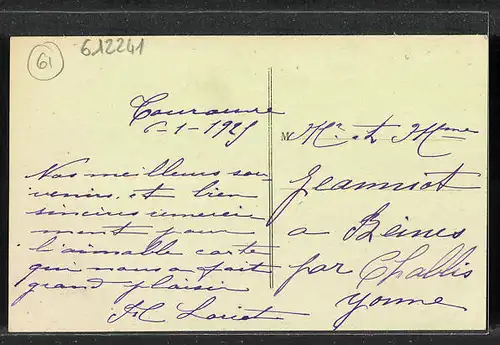 61
612241
Tourouvre
6-1-1925
Nos meilleurs sou-
venirs. et bien
sincères remerci
ment pour
l'aimable carte
qui nous a fait
grand plaisir
M Mr et Mme
Jeanniot
a Beines
par Chablis
Yonne